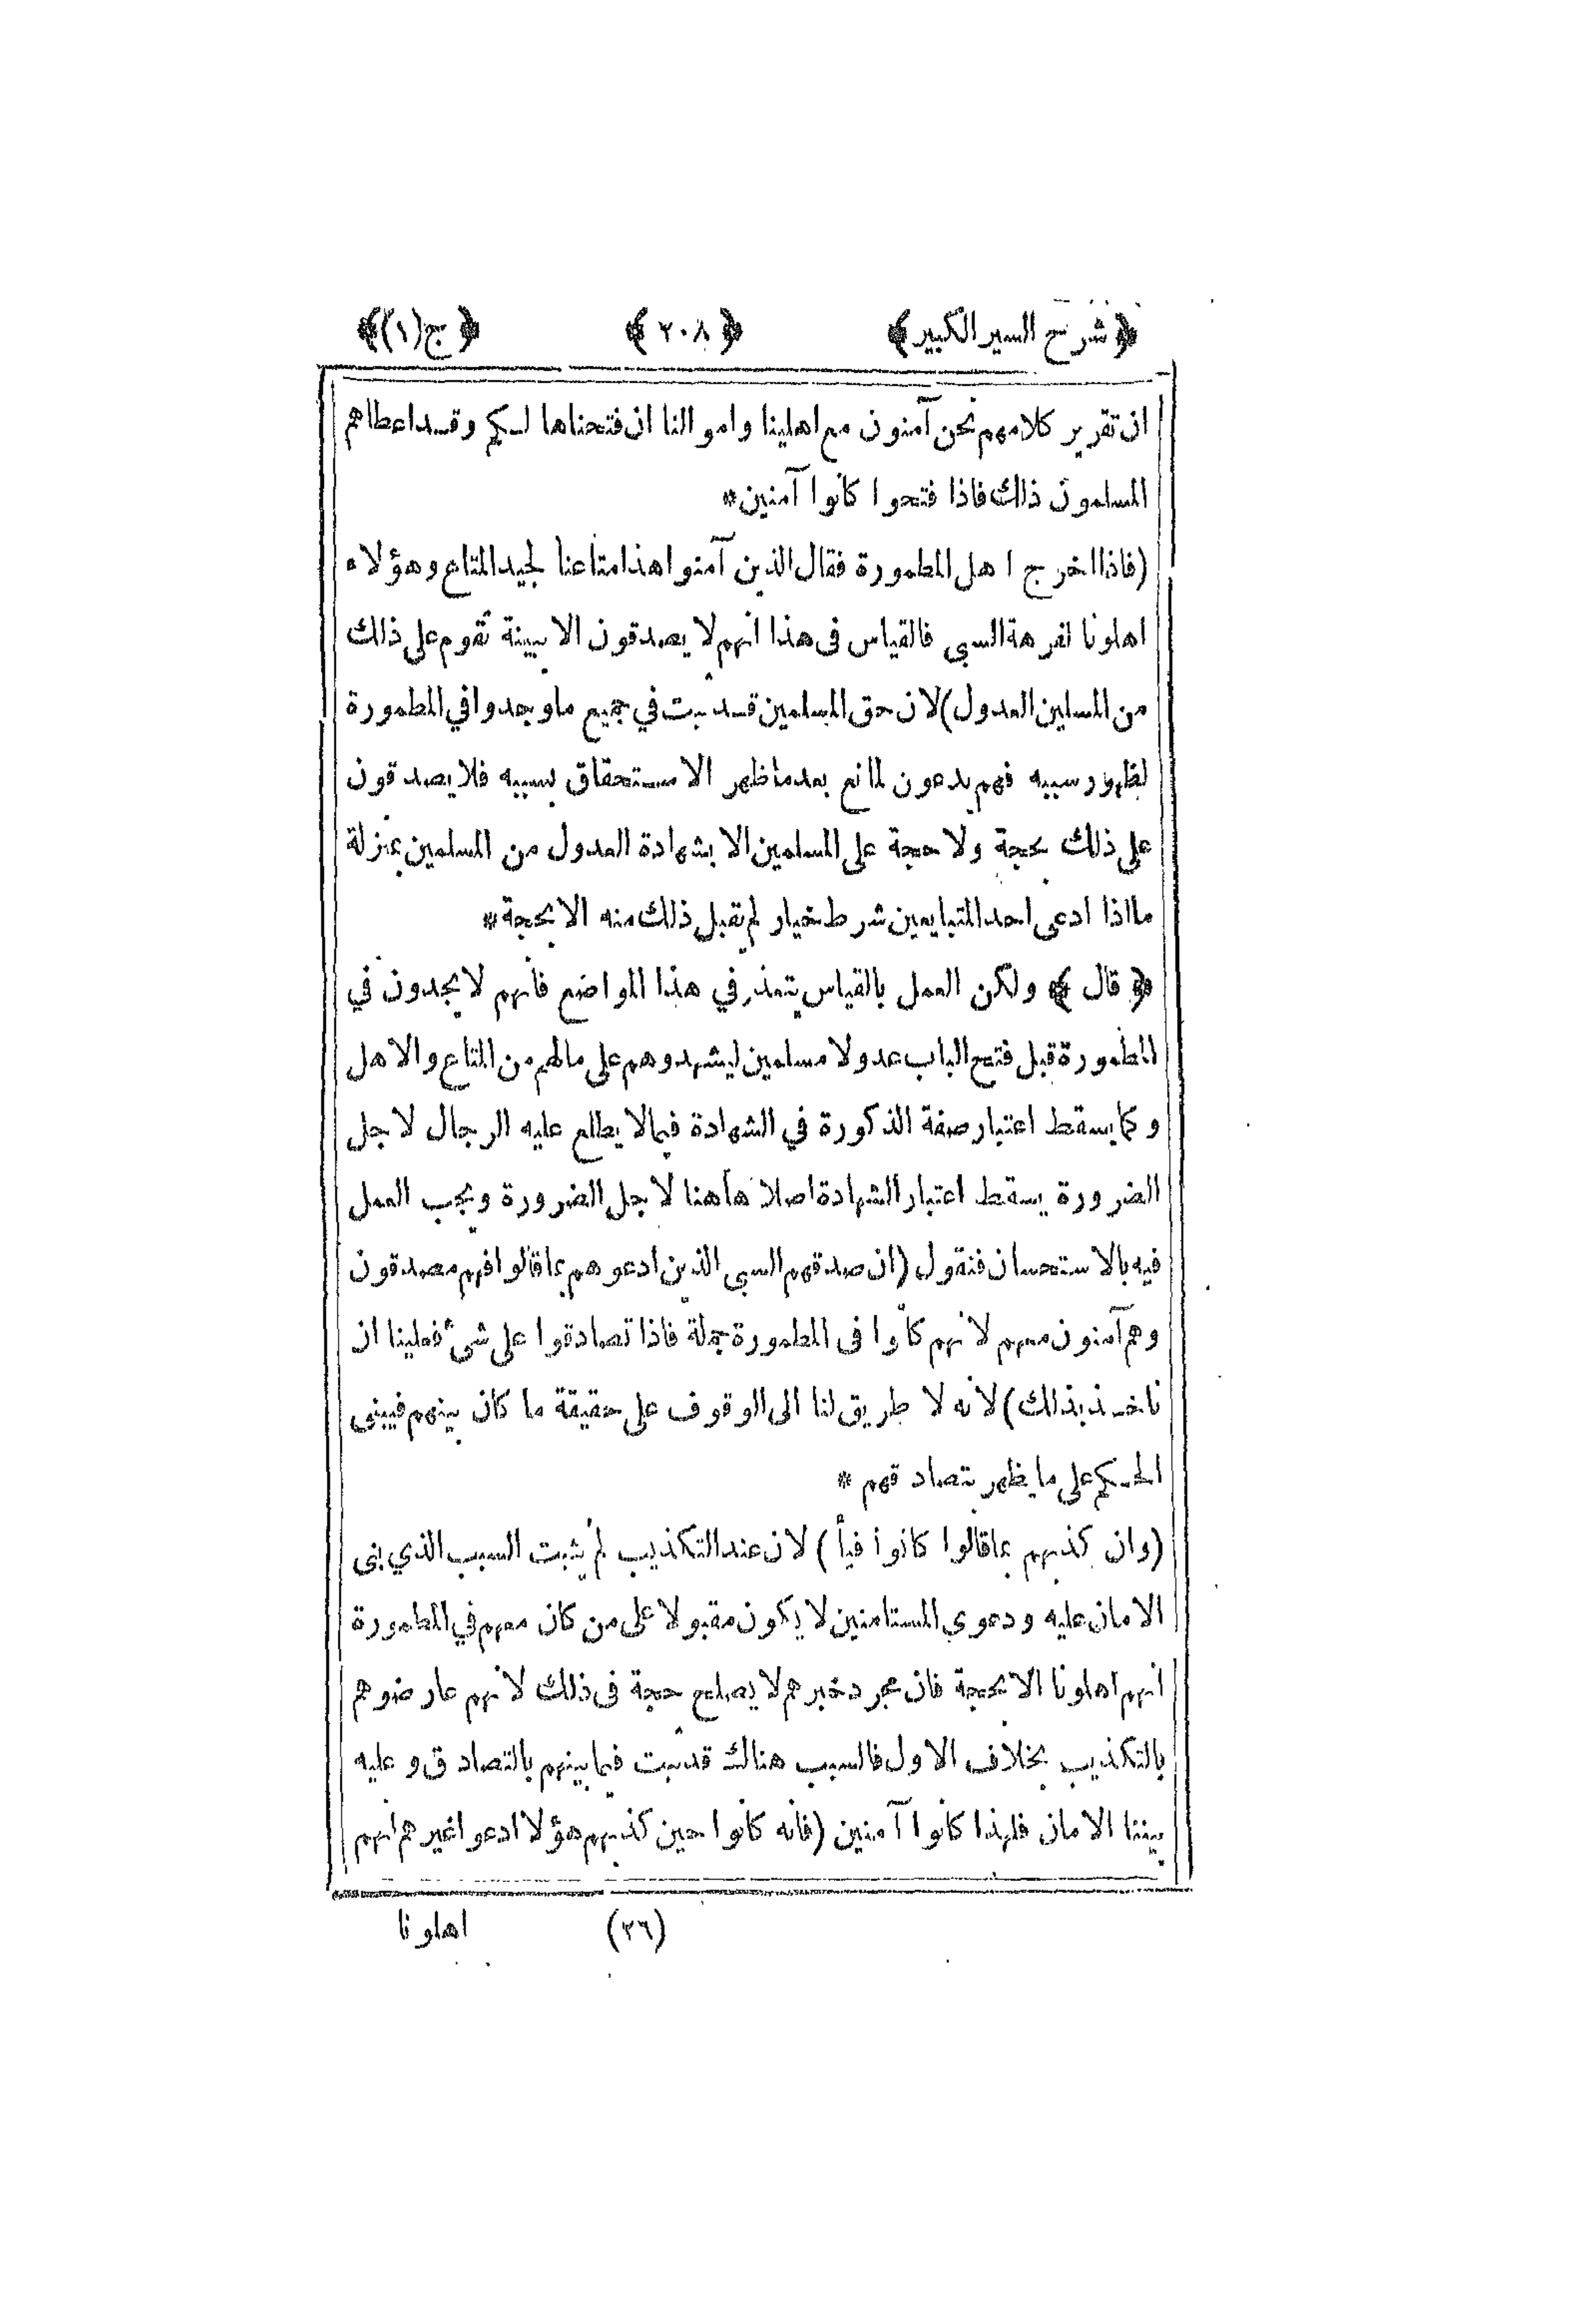 ﴿ شرح السير الكبير ﴾ ﴿ ٢٠٨ ﴾ ﴿ ج (١) ﴾
ان تقرير كلامهم نحن آمنون مع اهلينا واموالنا ان فتحناها لكم وقد اعطاهم
المسلمون ذلك فاذا فتحوا كانوا آمنين *
(فاذا اخرج اهل المطمورة فقال الذين آمنوا هذا متاعنا لجيد المتاع وهؤلاء
اهلونا لفرهة السبي فالقياس في هذا انهم لا يصدقون الا ببينة تقوم على ذلك
من المسلين العدول) لان حق المسلمين قد ثبت في جميع ما وجدوا في المطمورة
لظهور سببه فهم يدعون المانع بعد ما ظهر الاستحقاق بسببه فلا يصدقون
على ذلك بحجة ولا حجة على المسلمين الا بشهادة العدول من المسلمين بمنزلة
ما اذا ادعى احد المتبايعين شرط خيار لم تقبل ذلك منه الا بحجة *
﴿ قال ﴾ ولكن العمل بالقياس يتعذر في هذا المواضع فانهم لا يجدون في
المطمورة قبل فتح الباب عدولا مسلمين ليشهدوهم على مالهم من المتاع والاهل
وكما يسقط اعتبار صفة الذكورة في الشهادة فيما لا يطلع عليه الرجال لاجل
الضرورة يسقط اعتبار الشهادة اصلا هاهنا لاجل الضرورة ويجب العمل
فيه بالاستحسان فنقول (ان صدقهم السبي الذين ادعوهم بما قالوا فهم مصدقون
وهم آمنون معهم لانهم كانوا في المطمورة جملة فاذا تصادقوا على شيء فعلينا ان
ناخذ بذلك) لانه لا طريق لنا الى الوقوف على حقيقة ما كان بينهم فيبنى
الحكم على ما يظهر بتصادقهم *
(وان كذبهم بما قالوا كانوا فيأ) لان عند التكذيب لم يثبت السبب الذي بنى
الامان عليه ودعوى المستامنين لا يكون مقبولا على من كان معهم في المطمورة
انهم اهلونا الا بحجة فان مجرد خبرهم لا يصلح حجة في ذلك لانهم عارضوهم
بالتكذيب بخلاف الاول فالسبب هناك قد ثبت فيما بينهم بالتصادق وعليه
بيننا الامان فلهذا كانوا آمنين (فانه كانوا حين كذبهم هؤلا ادعوا غيرهم انهم
(٢٦) اهلونا